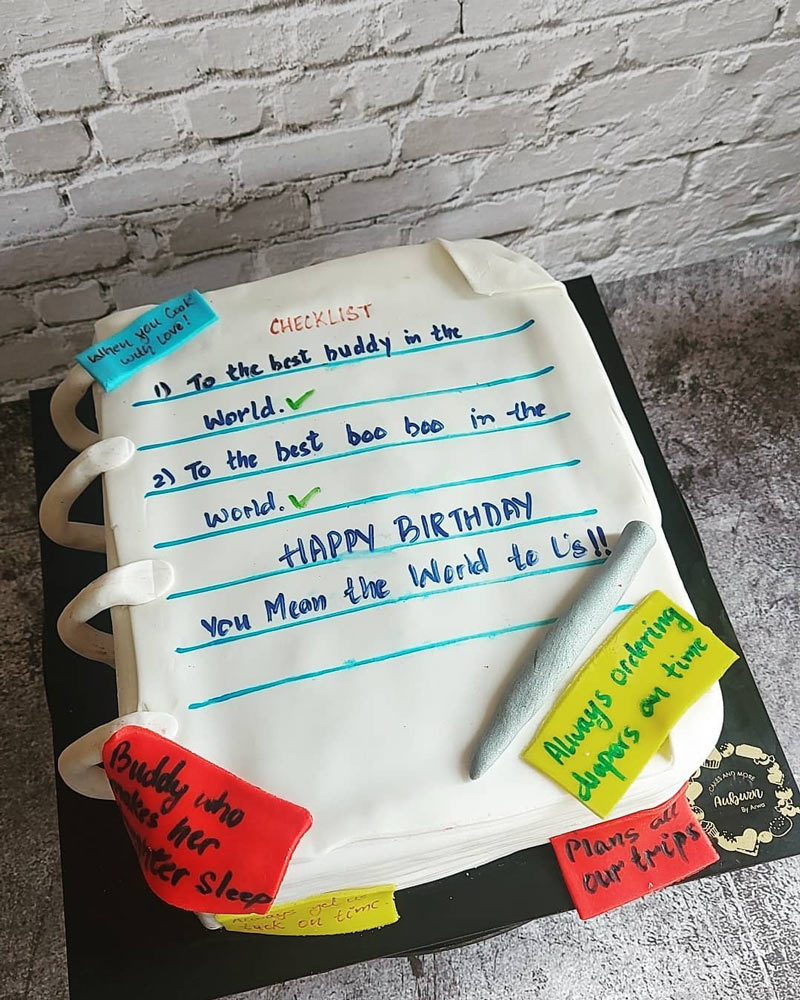 When you Cook
with Love!
CHECKLIST
1) To the best buddy in the
World.✓
2) To the best boo boo in the
world.✓
HAPPY BIRTHDAY
You Mean the World to Us!!
Always ordering
diapers on time
Buddy who
her
Sleep
Plans all
our trips
on time.
CAKES AND MORE
Auburn
By Arwa